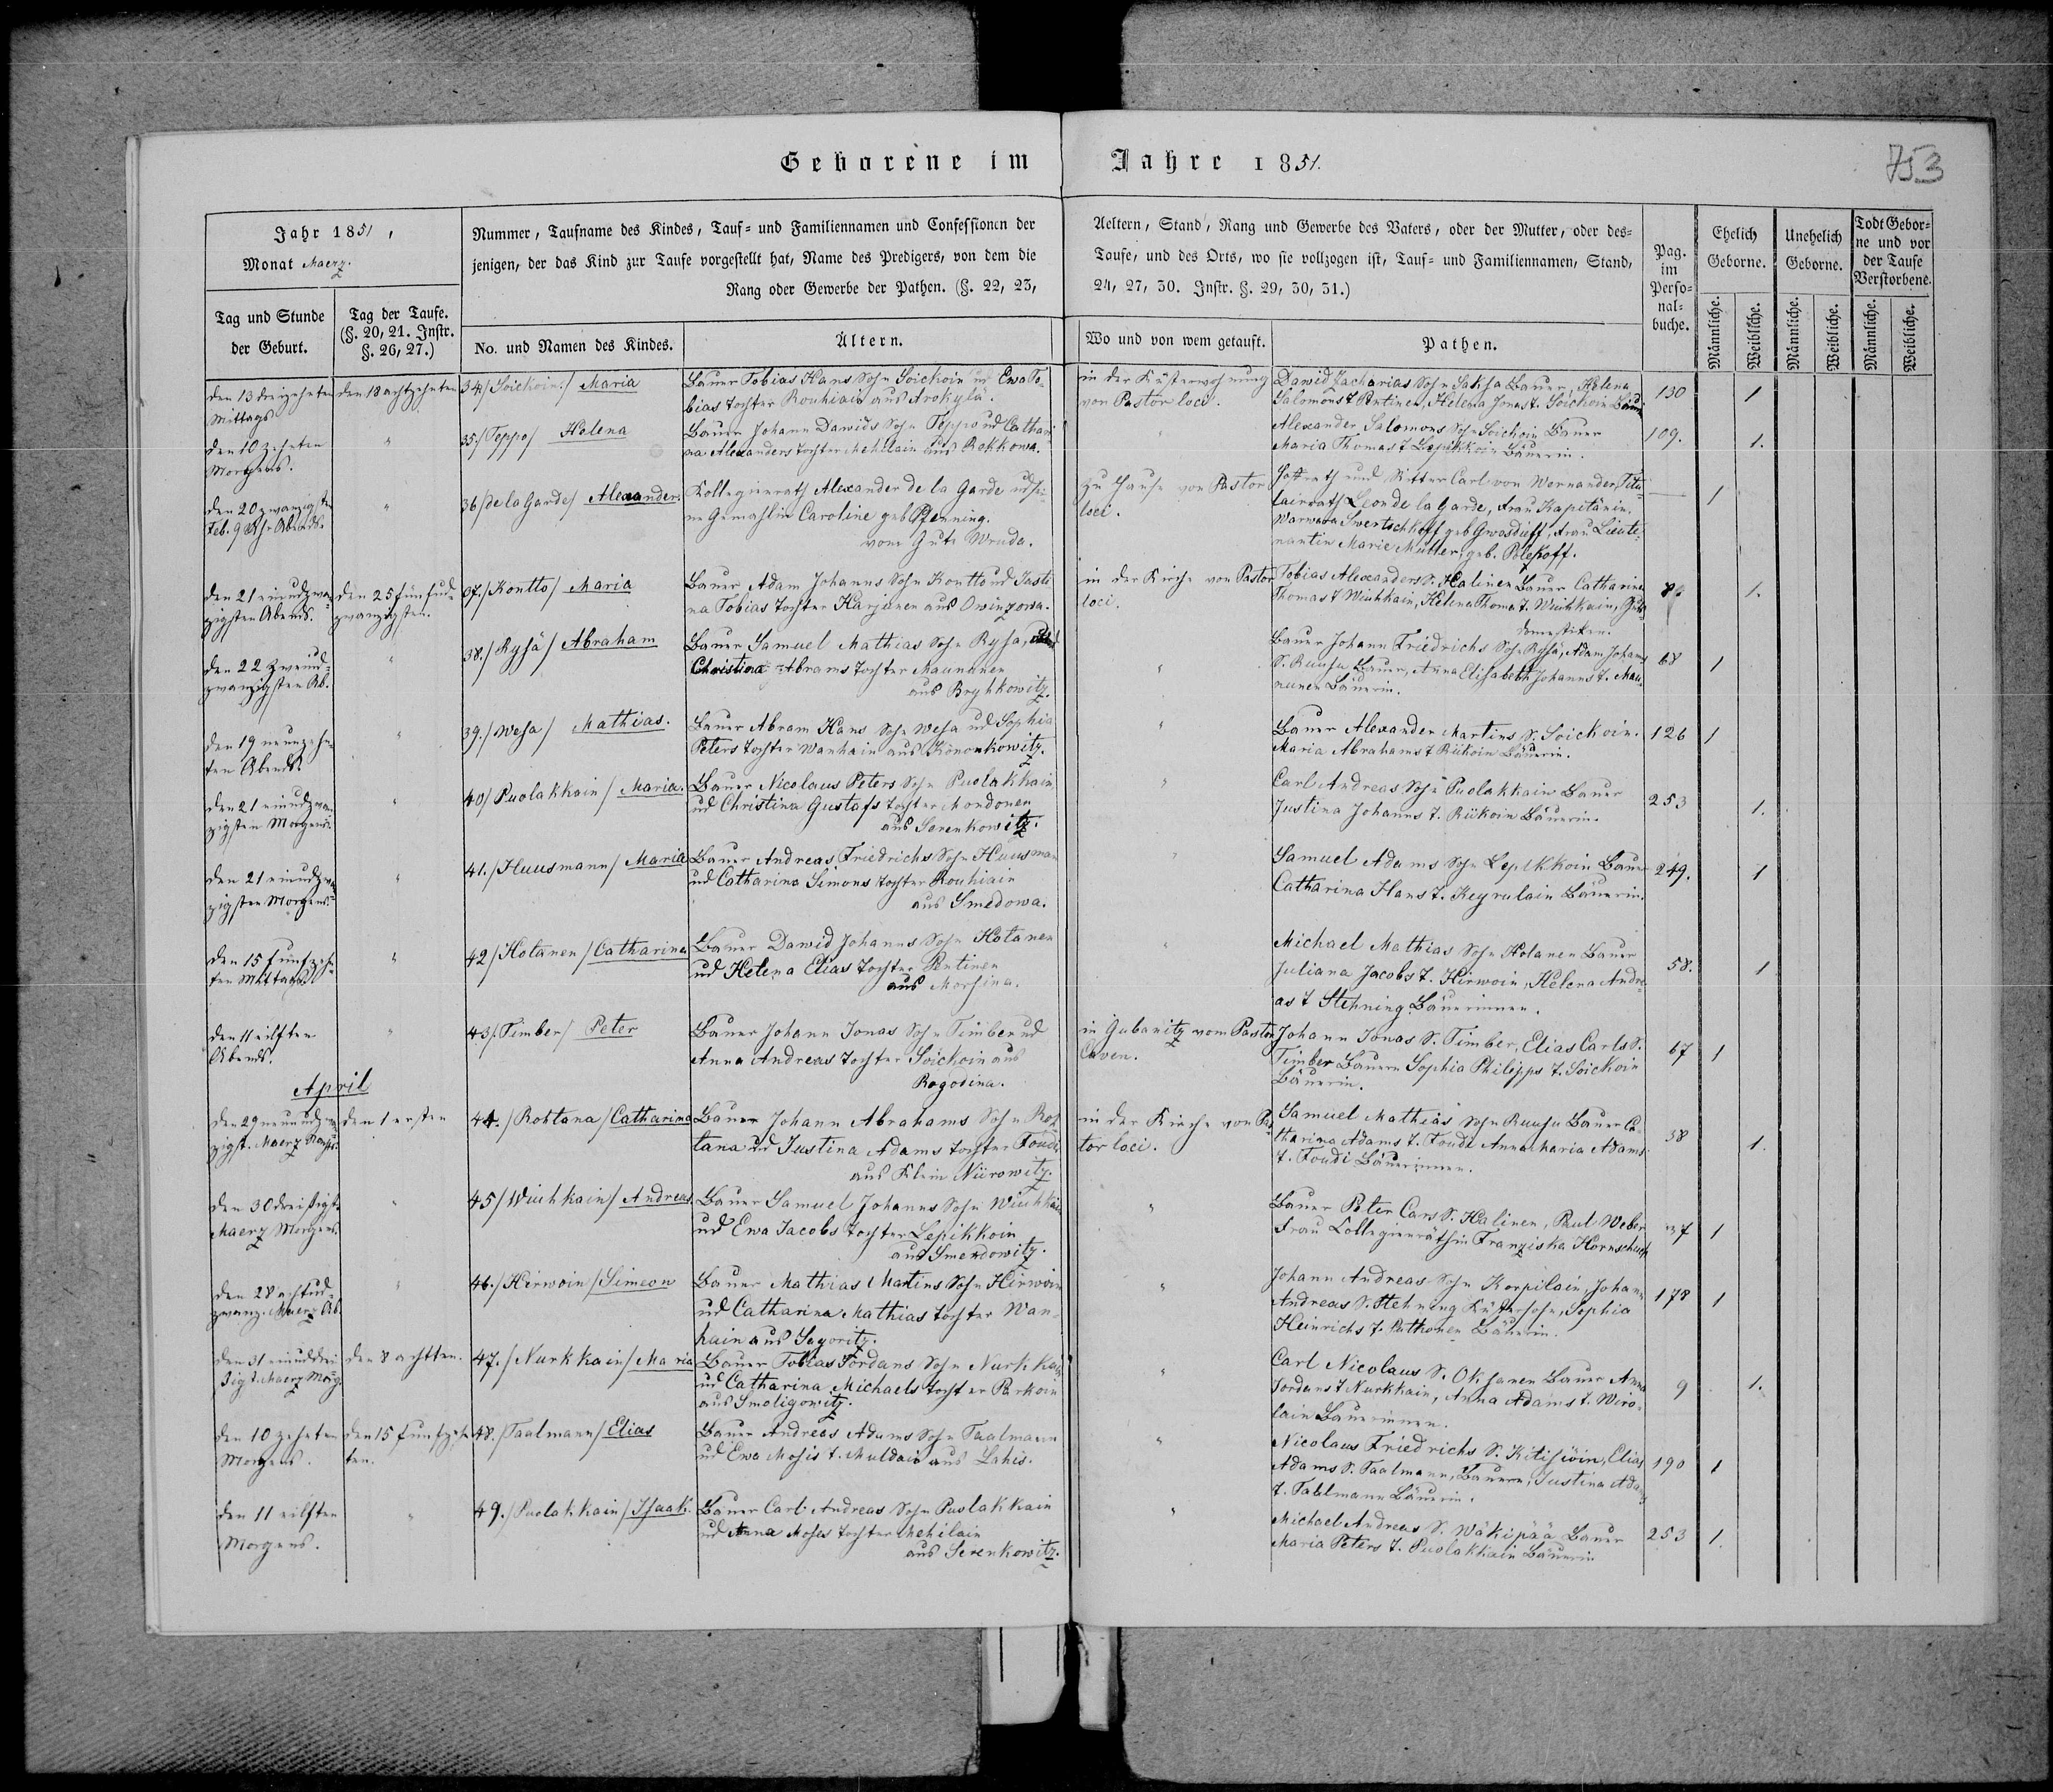 Geborene im Jahre 1851.
753
Jahr 1851,
Monat Maerz.
Tag und Stunde
der Geburt.
Tag der Taufe.
(§. 20, 21. Instr.
§. 26, 27.)
Nummer, Taufname des Kindes, Tauf- und Familiennamen und Confessionen der
jenigen, der das Kind zur Taufe vorgestellt hat, Name des Predigers, von dem die
Rang oder Gewerbe der Pathen. (§. 22, 23,
No. und Namen des Kindes.
Ältern.
Aeltern, Stand, Rang und Gewerbe des Vaters, oder der Mutter, oder des-
Taufe, und des Orts, wo sie vollzogen ist, Tauf- und Familiennamen, Stand,
24, 27, 30. Instr. §. 29, 30, 31.)
Wo und von wem getauft.
Pathen.
Pag.
im
Perso-
nal-
buche.
Ehelich
Geborne.
Unehelich
Geborne.
Todt Gebor-
ne und vor
der Taufe
Verstorbene.
Männliche.
Weibliche.
Männliche.
Weibliche.
Männliche.
Weibliche.
den 13 dreizehnten
Mittags
den 18 achtzehnten
34/ Soickoin/ Maria
Bauer Tobias Hans Sohn Soickoin ud Ewa To-
bias Tochter Rouhiain aus Arokylä.
in der Küsterwohnung
von Pastor loci.
Dawid Zacharias Sohn Saksa Bauer, Helena
Salomons T Pentinen, Helena Jonas T. Soickoin
130
1
den 10 zehnten
Morgens.
"
35./ Teppo/ Helena
Bauer Johann Dawids Sohn Teppo ud Catha-
na Alexanders Tochter Mehilain aus Rokkowa.
"
Alexander Salomons Sohn Soickoin Bauer
Maria Thomas T Lepikkoin Bäuerin.
109.
1.
den 20 zwanzigsten
Feb. 9 Uhr Abends.
"
36/ de la Garde/ Alexander.
Kollegienrath Alexander de la Garde ud sei-
ne Gemahlin Caroline geb Pfenning.
vom Gute Wruda.
zu Hause von Pastor
loci.
Hofrath und Ritter Carl von Wernander, Titu-
lairrath Leon de la Garde, Frau Kapitänin
Warwara Swertschkoff geb Gwosdeff, Frau Lieute-
nantin Marie Müller, geb. Poleskoff.
—
1
den 21 einudzwan-
zigsten Abends.
den 25 fünfud-
zwanzigsten.
37./ Kontto/ Maria
Bauer Adam Johanns Sohn Kontto ud Justi
na Tobias Tochter Harjunen aus Owinzowa.
in der Kirche von Pastor
loci.
Tobias Alexanders S. Halinen Bauer Catharina
Thomas T Wiuhkain, Helena Thoma T. Wiuhkain,
domestiken.
1.
den 22 zweiud-
zwanzigsten Ab.
"
38./ Rysä/ Abraham
Bauer Samuel Mathias Sohn Rysa, ud
Christina Abrams Tochter Maununen
aus Bryhkowitz.
"
Bauer Johann Friedrichs Sohn Rysä, Adam Johanns
S. Ruusu Bauer, Anna Elisabeth Johanns T. Mau-
nunen Bäuerin.
68
1
den 19 neunzehn-
ten Abends.
"
39./ Wesa/ Mathias.
Bauer Abram Hans Sohn Wesa ud Sophia
Peters Tochter Wanhain aus Kononkowitz.
"
Bauer Alexander Martins S. Soickoin.
Maria Abrahams T Riikoin Bäuerin.
126
1
den 21 einudzwan-
zigsten Morgens.
"
40/ Puolakkain/ Maria.
Bauer Nicolaus Peters Sohn Puolakkain
ud Christina Gustafs Tochter Mondonen
aus Serenkowitz.
"
Carl Andreas Sohn Puolakkain Bauer
Justina Johanns T. Riikoin Bäuerin.
253
1.
den 21 einudzwan
zigsten Morgens.
"
41./ Huusmann/ Maria
Bauer Andreas Friedrichs Sohn Huusman
ud Catharina Simons Tochter Rouhiain
aus Smedowa.
"
Samuel Adams Sohn Lepikkoin Bauer
Catharina Hans T. Keyrulain Bäuerin.
249.
1
den 15 funfzehn-
ten Mittags
"
42/ Hotanen/ Catharina
Bauer Dawid Johanns Sohn Hotanen
ud Helena Elias Tochter Pentinen
aus Morsina.
"
Michael Mathias Sohn Hotanen Bauer
Juliana Jacobs T. Hirwoin, Helena Andre-
as T Stehning Bäuerinnen.
58.
1
den 11 eilften
Abends.
"
43/. Timber/ Peter
Bauer Johann Jonas Sohn Timber ud
Anna Andreas Tochter Soickoin aus
Rogodina.
in Gubanitz vom Pastor
Caven.
Johann Jonas S. Timber, Elias Carls S.
Timber Bauern Sophia Philipps T. Soickoin
Bäuerin.
67
1
April
den 29 neunudzwan-
zigst. Maerz
den 1 ersten
44./ Roktana/ Catharina
Bauer Johann Abrahams Sohn Rok
tana ud Justina Adams Tochter Toudi
aus Klein Nürowitz.
in der Kirche von Pas-
tor loci.
Samuel Mathias Sohn Ruusu Bauer Ca-
tharina Adams T. Toudi Anna Maria Adams
T. Toudi Bäuerinnen.
38
1.
den 30 dreißigst.
Maerz Morgens.
"
45/ Wiuhkain/ Andreas.
Bauer Samuel Johanns Sohn Wiuhkain
ud Ewa Jacobs Tochter Lepikkoin
aus Smerdowitz.
"
Bauer Peter Cars S. Halinen, Paul Weber
Frau Collegienräthin Franziska Hornschuch
37
1
den 28 achtud-
zwanz. Maerz Ab.
"
46./ Hirwoin/ Simeon
Bauer Mathias Martins Sohn Hirwoin
ud Catharina Mathias Tochter Wan-
hain aus Sagoritz.
"
Johann Andreas Sohn Korpilain Johann
Andreas S. Stehning Küstersohn, Sophia
Heinrichs T. Puthonen Bäuerin.
178
1
den 31 einuddrei
ßigt. Maerz Morg.
den 8 achtten.
47./ Nurkkain/ Maria
Bauer Tobias Jordans Sohn Nurkkain
ud Catharina Michaels Tochter Parkoin
aus Smoligowitz.
"
Carl Nicolaus S. Oksanen Bauer Anna
Jordans T Nurkkain, Anna Adams T. Wiro-
lain Bäuerinnen.
9
1.
den 10 zehnten
Morgens.
den 15 funfzehn
ten.
48./ Taalmann/ Elias
Bauer Andreas Adams Sohn Taalmann
ud Ewa Mosis T. Muldain aus Lahis.
"
Nicolaus Friedrichs S. Kitisiöin, Elias
Adams S. Taalmann, Bauern, Justina Adams
T. Tahlmann Bäuerin.
190
1
den 11 eilften
Morgens.
"
49./ Puolakkain/ Isaak.
Bauer Carl Andreas Sohn Puolakkain
ud Anna Moses Tochter Mehilain
aus Serenkowitz.
"
Michael Andreas S. Wäkipää Bauer
Maria Peters T. Puolakkain Bäuerin
253
1.